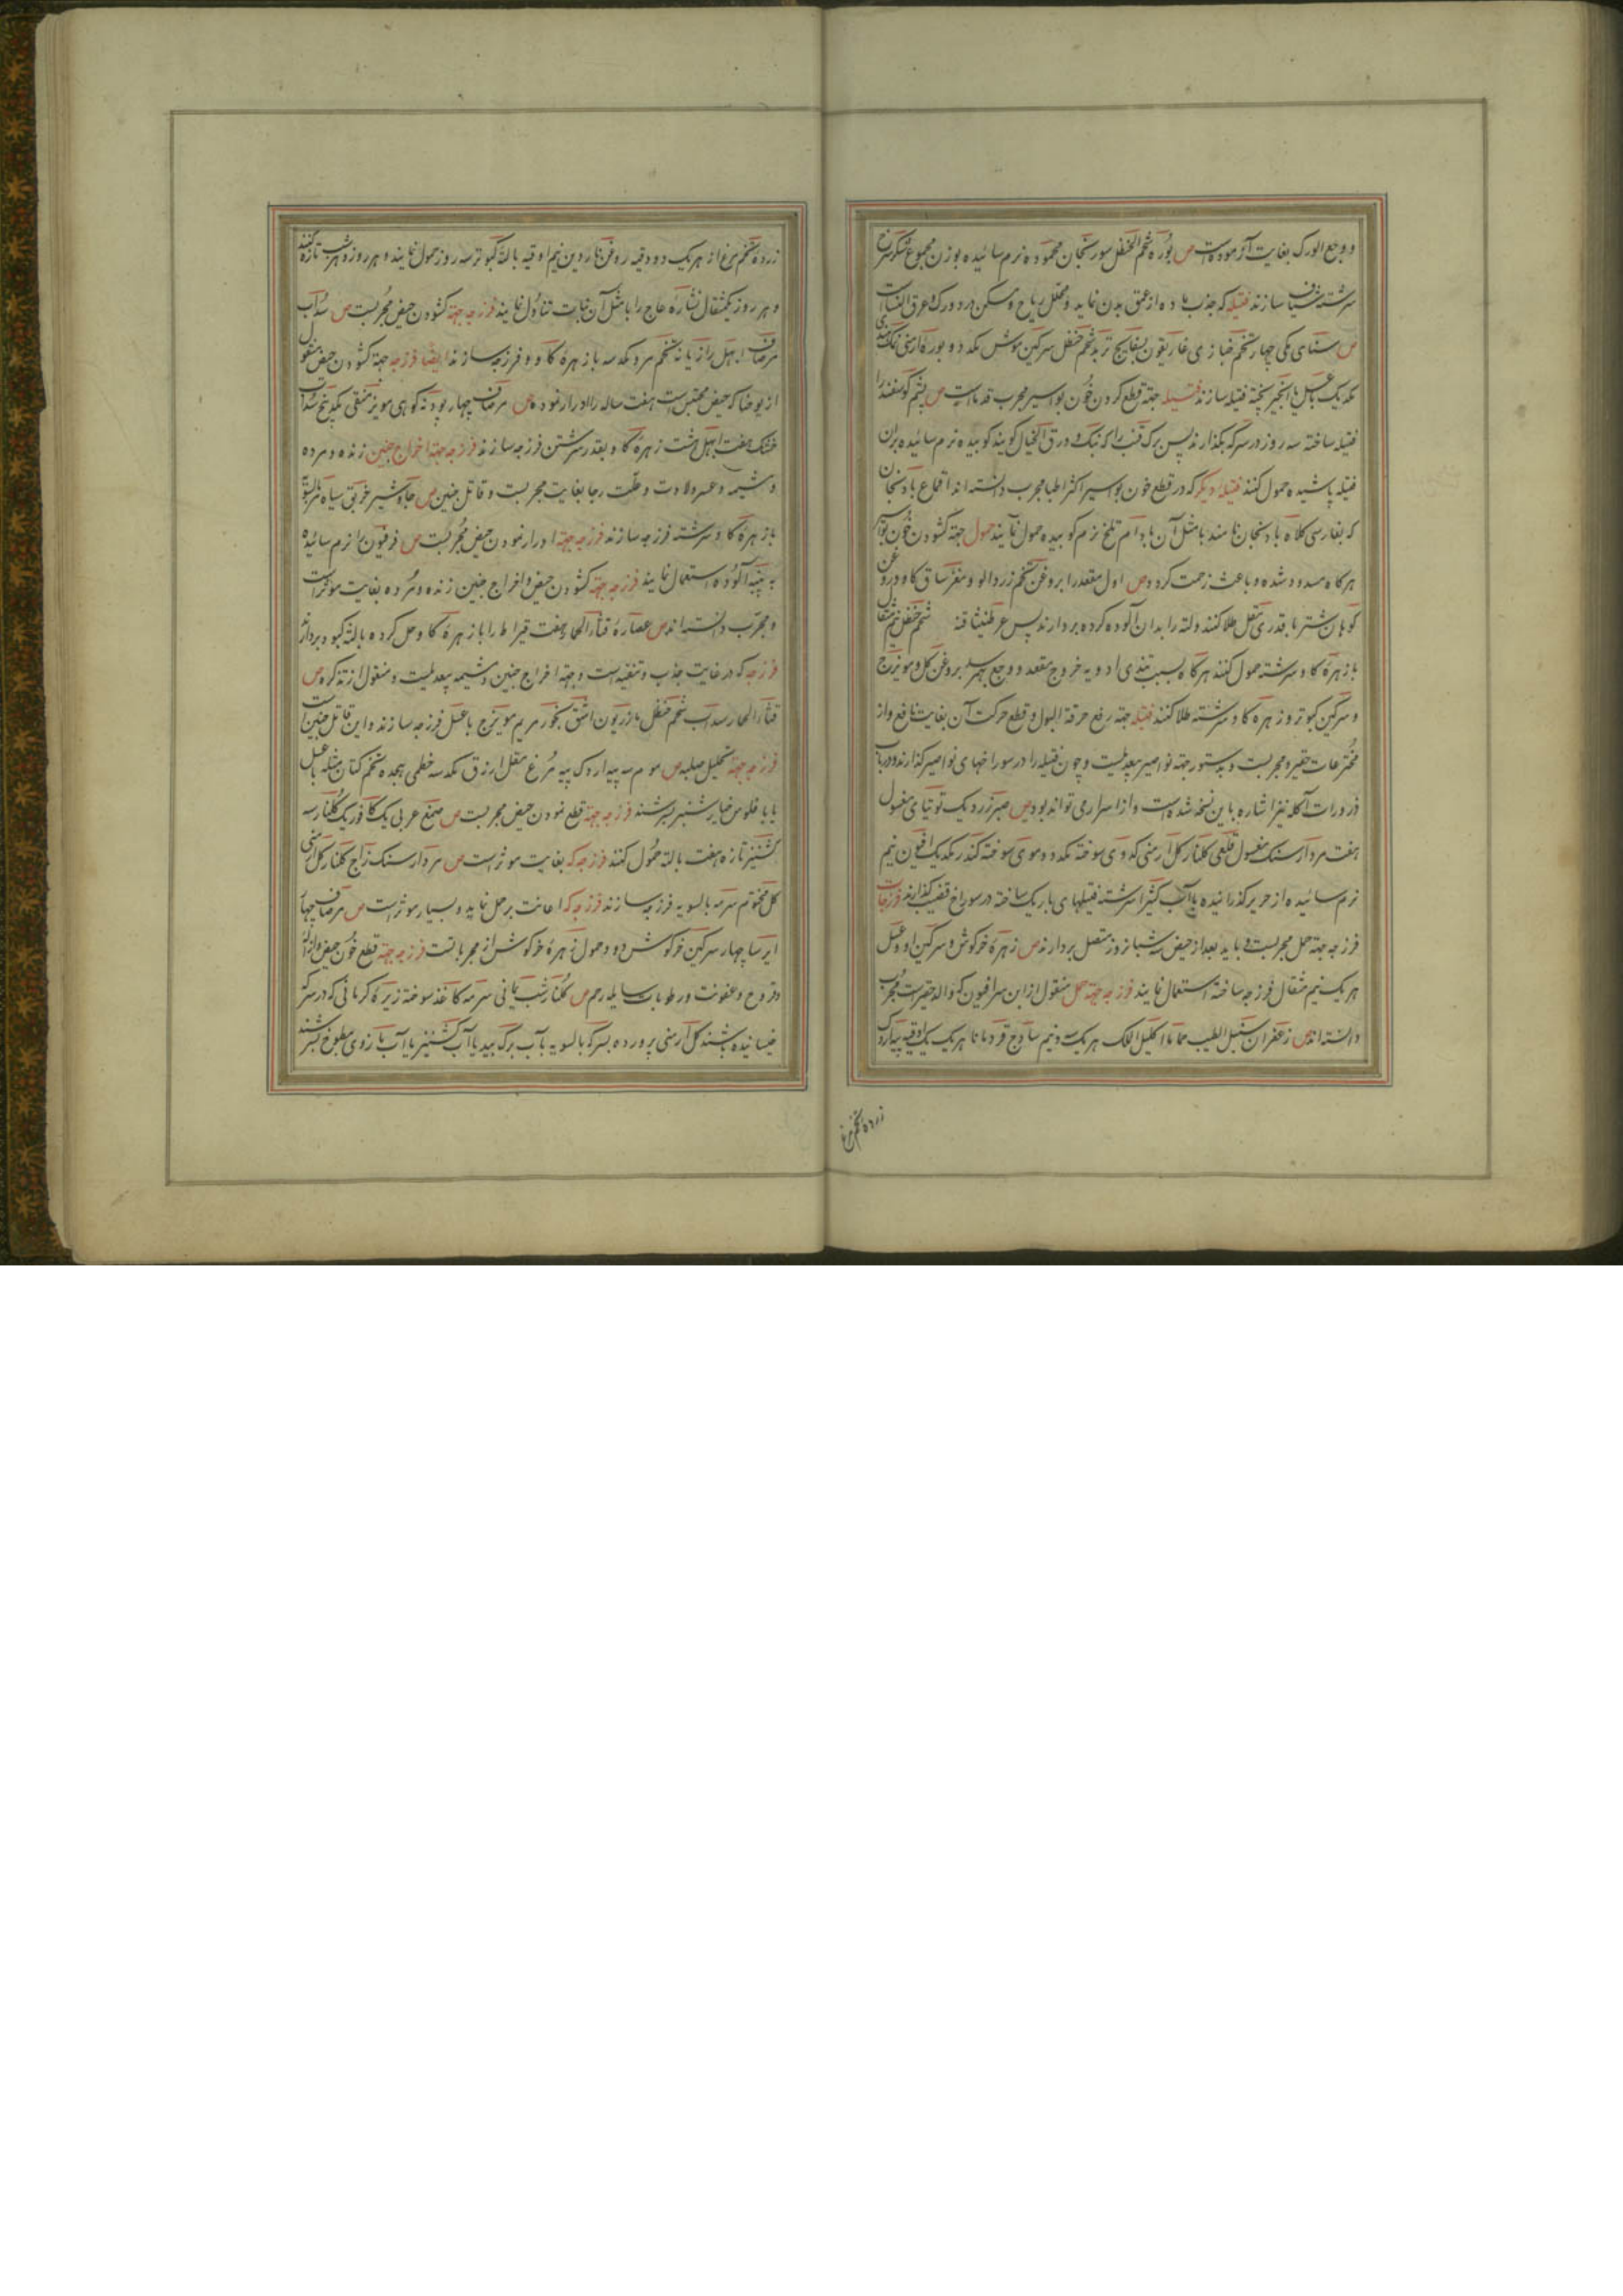 و وجع الورک بغایت آزموده است ص بوره شحم الحنظل سورنجان محموده نرم سائیده بوزن مجموع شکر سرخ
سرشته شیاف سازند فتیله که جذب ماده از عمق بدن نماید و محلل ریاح و مسکن درد ورک و عرق النسا است
ص سنای مکی چهار تخم خبازی غاریقون بسفایج تربد شحم حنظل سرکین موش یکد دو بوره ارمنی نمک هندی
یکد یک با عسل یا انجیر پخته فتیله سازند فتیله جهة قطع کردن خون بواسیر مجرب قدماست ص پشم کوسفند را
فتیله ساخته سه روز در سرکه بکذارند پس برک قنب را که بنک و ورق الخیال کویند کوبیده نرم سائیده بران
فتیله پاشیده حمول کنند فتیله دیکر که در قطع خون بواسیر اکثر اطبا مجرب دانسته اند اقماع بادنجان
که بفارسی کلاه بادنجان نامند با مثل آن بادام تلخ نرم کوبیده حمول نمایند حمول جهة کشودن خون بواسیر
هرکاه مسدود شده و باعث زحمت کردد ص اول مقعد را بروغن تخم زردالو و مغز ساق کاو و روغن
کوهان شتر با قدری مقل طلا کنند و لته را بدان آلوده کرده بردارند پس عرطنیثا شحم حنظل نیم مثقال
با زهره کاو سرشته حمول کنند هرکاه بسبب تندی ادویه خروج مقعد و وجع بهم رسد بروغن کل و مویزج
و سرکین کبوتر و زهره کاو سرشته طلا کنند فتیله جهة رفع حرقة البول و قطع حرکت آن بغایت نافع و از
مخترعات حقیر و مجربست و بدستور جهة نواصیر بیعدیلست و چون فتیله را در سوراخهای نواصیر کذارند و در باب
ذرورات آکله نیز اشاره باین نسخه شده است و از اسرار می تواند بود ص صبر زرد یک توتیای مغسول
هفت مردارسنک مغسول قلعی کلنار کل ارمنی کدوی سوخته یکد دو موی سوخته کندر یکد یک افیون نیم
نرم سائیده از حریر کذرانیده با آب کثیرا سرشته فتیلهای باریک ساخته در سوراخ قضیب کذارند فرزجات
فرزجه جهة حمل مجربست و باید بعد از حیض سه شبانه روز متصل بردارند ص زهره خرکوش و سرکین او و عسل
هر یک نیم مثقال فرزجه ساخته استعمال نمایند فرزجه جهة حمل منقول از ابن سرافیون که والد حقیر است مجرب
دانسته اند ص زعفران سنبل الطیب حماما اکلیل الملک هر یک سه و نیم ساذج قردمانا هر یک یک اوقیه پیه اردک
زرده تخم مرغ
زرده تخم مرغ از هر یک دو وقیه روغن ناردین نیم اوقیه با لته کبود تر سه روز حمول نمایند و هر روز و هر شب تازه کنند
و هر روز یکمثقال نشاره عاج را با مثل آن نبات تناول نمایند فرزجه جهة کشودن حیض مجربست ص سداب
مرصاف ابهل رازیانه تخم مرو یکد سه با زهره کاو فرزجه سازند ایضا فرزجه جهة کشودن حیض منقول
از یوحنا که حیض محتبس است هفت ساله را ادرار نموده ص مرصاف چهار پودنه کوهی مویز منقی یکد پنج سداب
خشک هفت ابهل هشت زهره کاو بقدر سرشتن فرزجه سازند فرزجه جهة اخراج جنین زنده و مرده
و مشیمه و عسر ولادت و علت رجا بغایت مجربست و قاتل جنین ص جاوشیر خربق سیاه بالسویه
با زهره کاو سرشته فرزجه سازند فرزجه جهة ادرار نمودن حیض مجربست ص فرفیون را نرم سائیده
به پنبه آلوده استعمال نمایند فرزجه جهة کشودن حیض و اخراج جنین زنده و مرده بغایت موثر است
و مجرب دانسته اند ص عصاره قثاء الحمار هفت قیراط را با زهره کاو حل کرده با لته کبود بردارند
فرزجه که در غایت جذب و تنقیه است و جهة اخراج جنین و مشیمه بیعدیلست و منقول از تذکره ص
قثاء الحمار سداب شحم حنظل مازریون اشق بخور مریم مویزج با عسل فرزجه سازند و این قاتل جنین است
فرزجه جهة تحلیل صلبه ص موم سه پیه اردک پیه مرغ مقل ازرق یکد سه خطمی هجده تخم کتان مثله با عسل
یا با فلوس خیارشنبر بسرشند فرزجه جهة قطع نمودن حیض مجربست ص صمغ عربی یک کافور یک کلنار سه
کشنیز تازه هفت با لته حمول کنند فرزجه که بغایت موثر است ص مردارسنک زاج کلنار کل ارمنی
کل مختوم سرمه بالسویه فرزجه سازند فرزجه که اعانت بر حمل نماید و بسیار موثر است ص مرصاف چهار
ایرسا چهار سرکین خرکوش دو و حمول زهره خرکوش از مجرباتست فرزجه جهة قطع خون حیض و ازاله
و قروح و عفونت و رطوبات سایله رحم ص کلنار شب یمانی سرمه کاغذ سوخته زیره کرمانی که در سرکه
خیسانیده باشند کل ارمنی پرورده بسرکه بالسویه بآب برک بید یا آب کشنیز یا آب مازوی مطبوخ بسرشند